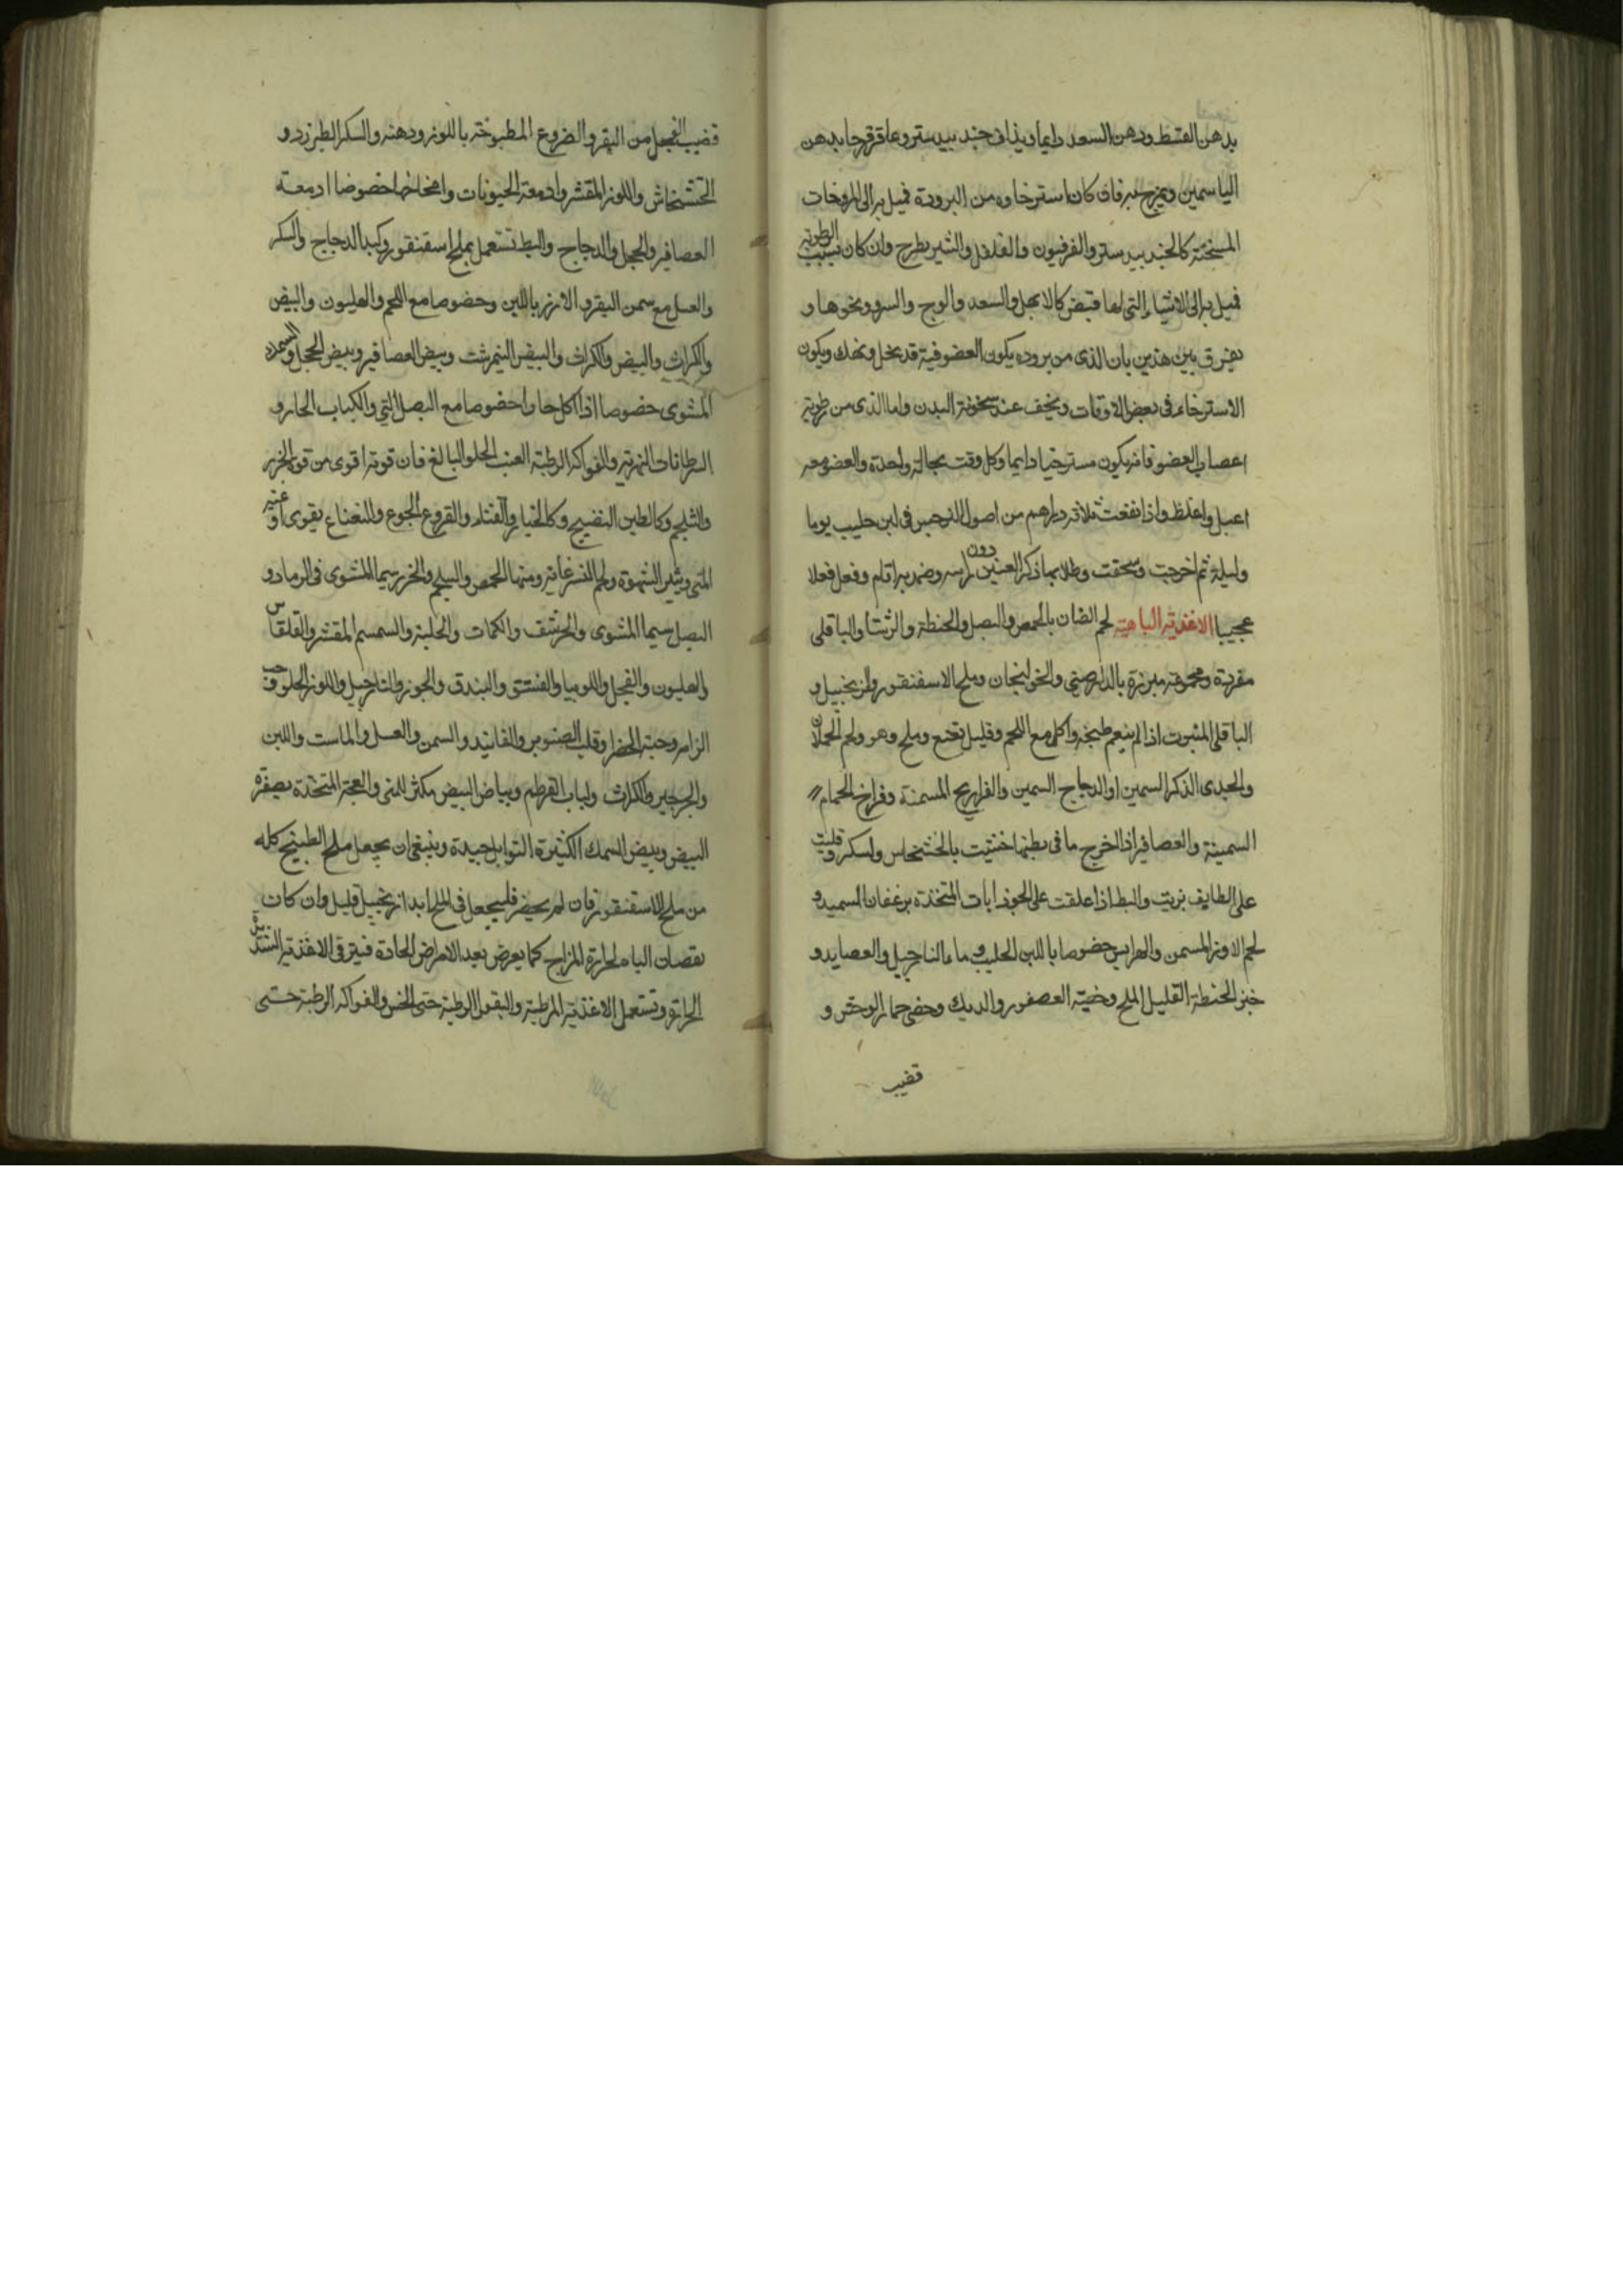 بدهن القسط ودهن السعد دايما ويذاف جند بيدستر وعاقرقرحا بدهن
الياسمين ويمرخ به فان كان استرخاوه من البرودة فميل به الى المروخات
المسخنة كالجند بيدستر والفرفيون والفلفل والشيرطرح وان كان بسبب الرطوبة
فميل به الى الاشياء التى لها قبض كالابهل والسعد والوج والسرو ونحوها و
يفرق بين هذين بان الذى من بروده يكون العضو فيه قد نحل ونهك ويكون
الاسترخاء فى بعض الاوقات ويخف عند سخونة البدن واما الذى من رطوبة
اعصاب العضو فانه يكون مسترخيا دايما وكل وقت بحالة واحدة والعضو معه
اعبل واغلظ واذا نقعت ثلاثه دراهم من اصول النرجس فى لبن حليب يوما
وليلة ثم اخرجت وسحقت وطلا بها ذكر العنين دون راسه وضمد به اقام وفعل فعلا
عجيبا الاغذية الباهية لحم الضان بالحمص والبصل والحنطة والرشتا والباقلى
مفردة ومجموعه مبزرة بالدارصينى والخولنجان وملح الاسقنقور والزنجبيل و
الباقلى المثبوت اذا لم ينعم طبخه واكل مع اللحم وقليل نعنع وملح وهو ولحم الحملان
والجدى الذكر السمين او الدجاج السمين والفراريج المسمنة وفراخ الحمام
السمينة والعصافير اذا اخرج ما فى بطنها حشيت بالخشخاش والسكر وقليت
على الطابق بزيت والبط اذا علقت على الجوذابات المتخذة برغفان السميد و
لحم الاوز المسمن والهرايس خصوصا باللبن الحليب وماء النارجيل والعصايد و
خبز الحنطة القليل الملح وخصية العصفور والديك وخصى حمار الوحش و
قضيب
قضيب الفجل من البقر والضروع المطبوخة باللوز ودهنه والسكر الطبرزد و
الخشخاش واللوز المقشر وادمغة الحيونات وامخاخها خصوصا ادمغة
العصافير والحجل والدجاج والبط تستعمل بملح اسقنقور وكبد الدجاج والسكر
والعسل مع سمن البقر والارز باللبن وخصوصا مع اللحم والهليون والبيض
والكراث والبيض والكراث والبيض النيمرشت وبيض العصافير وبيض الحجل والسمك
المشوى خصوصا اذا اكل حارا وخصوصا مع البصل النى والكباب الحار و
السرطانات النهرية والفواكه الرطبة العنب الحلو البالغ فان قوته اقوى من قوة الجزر
والثلج وكالطين النضيج وكالخيار والقثاء والقروع الجوع والنعناع يقوى اوعيه
المنى ويثير الشهوة ولحم النسر غاية ومنها الحمص والسلجم والجزر سيما المشوى فى الرماد و
البصل سيما المشوى والحرشف والكمات والحلبة والسمسم المقشر والقلقاس
والهليون والفجل واللوبيا والفستق والبندق والجوز والنارجيل واللوز الحلو وحب
الزلم وحبة الخضرا وقلب الصنوبر والفانيد والسمن والعسل والماست واللبن
والجرجير والكراث ولباب القرطم وبياض البيض مكثر للمنى والعجة المتخذة بصفرة
البيض وبيض السمك الكثيرة التوابل جيدة وينبغى ان يجعل ملح الطبيخ كله
من ملح الاسقنقور فان لم يحضر فليجعل فى الملح ابدا زنجبيل قليل وان كان
نقصان الباه لحرارة المزاج كما يعرض بعد الامراض الحادة فيترقى الاغذية الشديدة
الحرارة وتستعمل الاغذية المرطبة والبقول الرطبة حتى الخس والفواكه الرطبة حتى